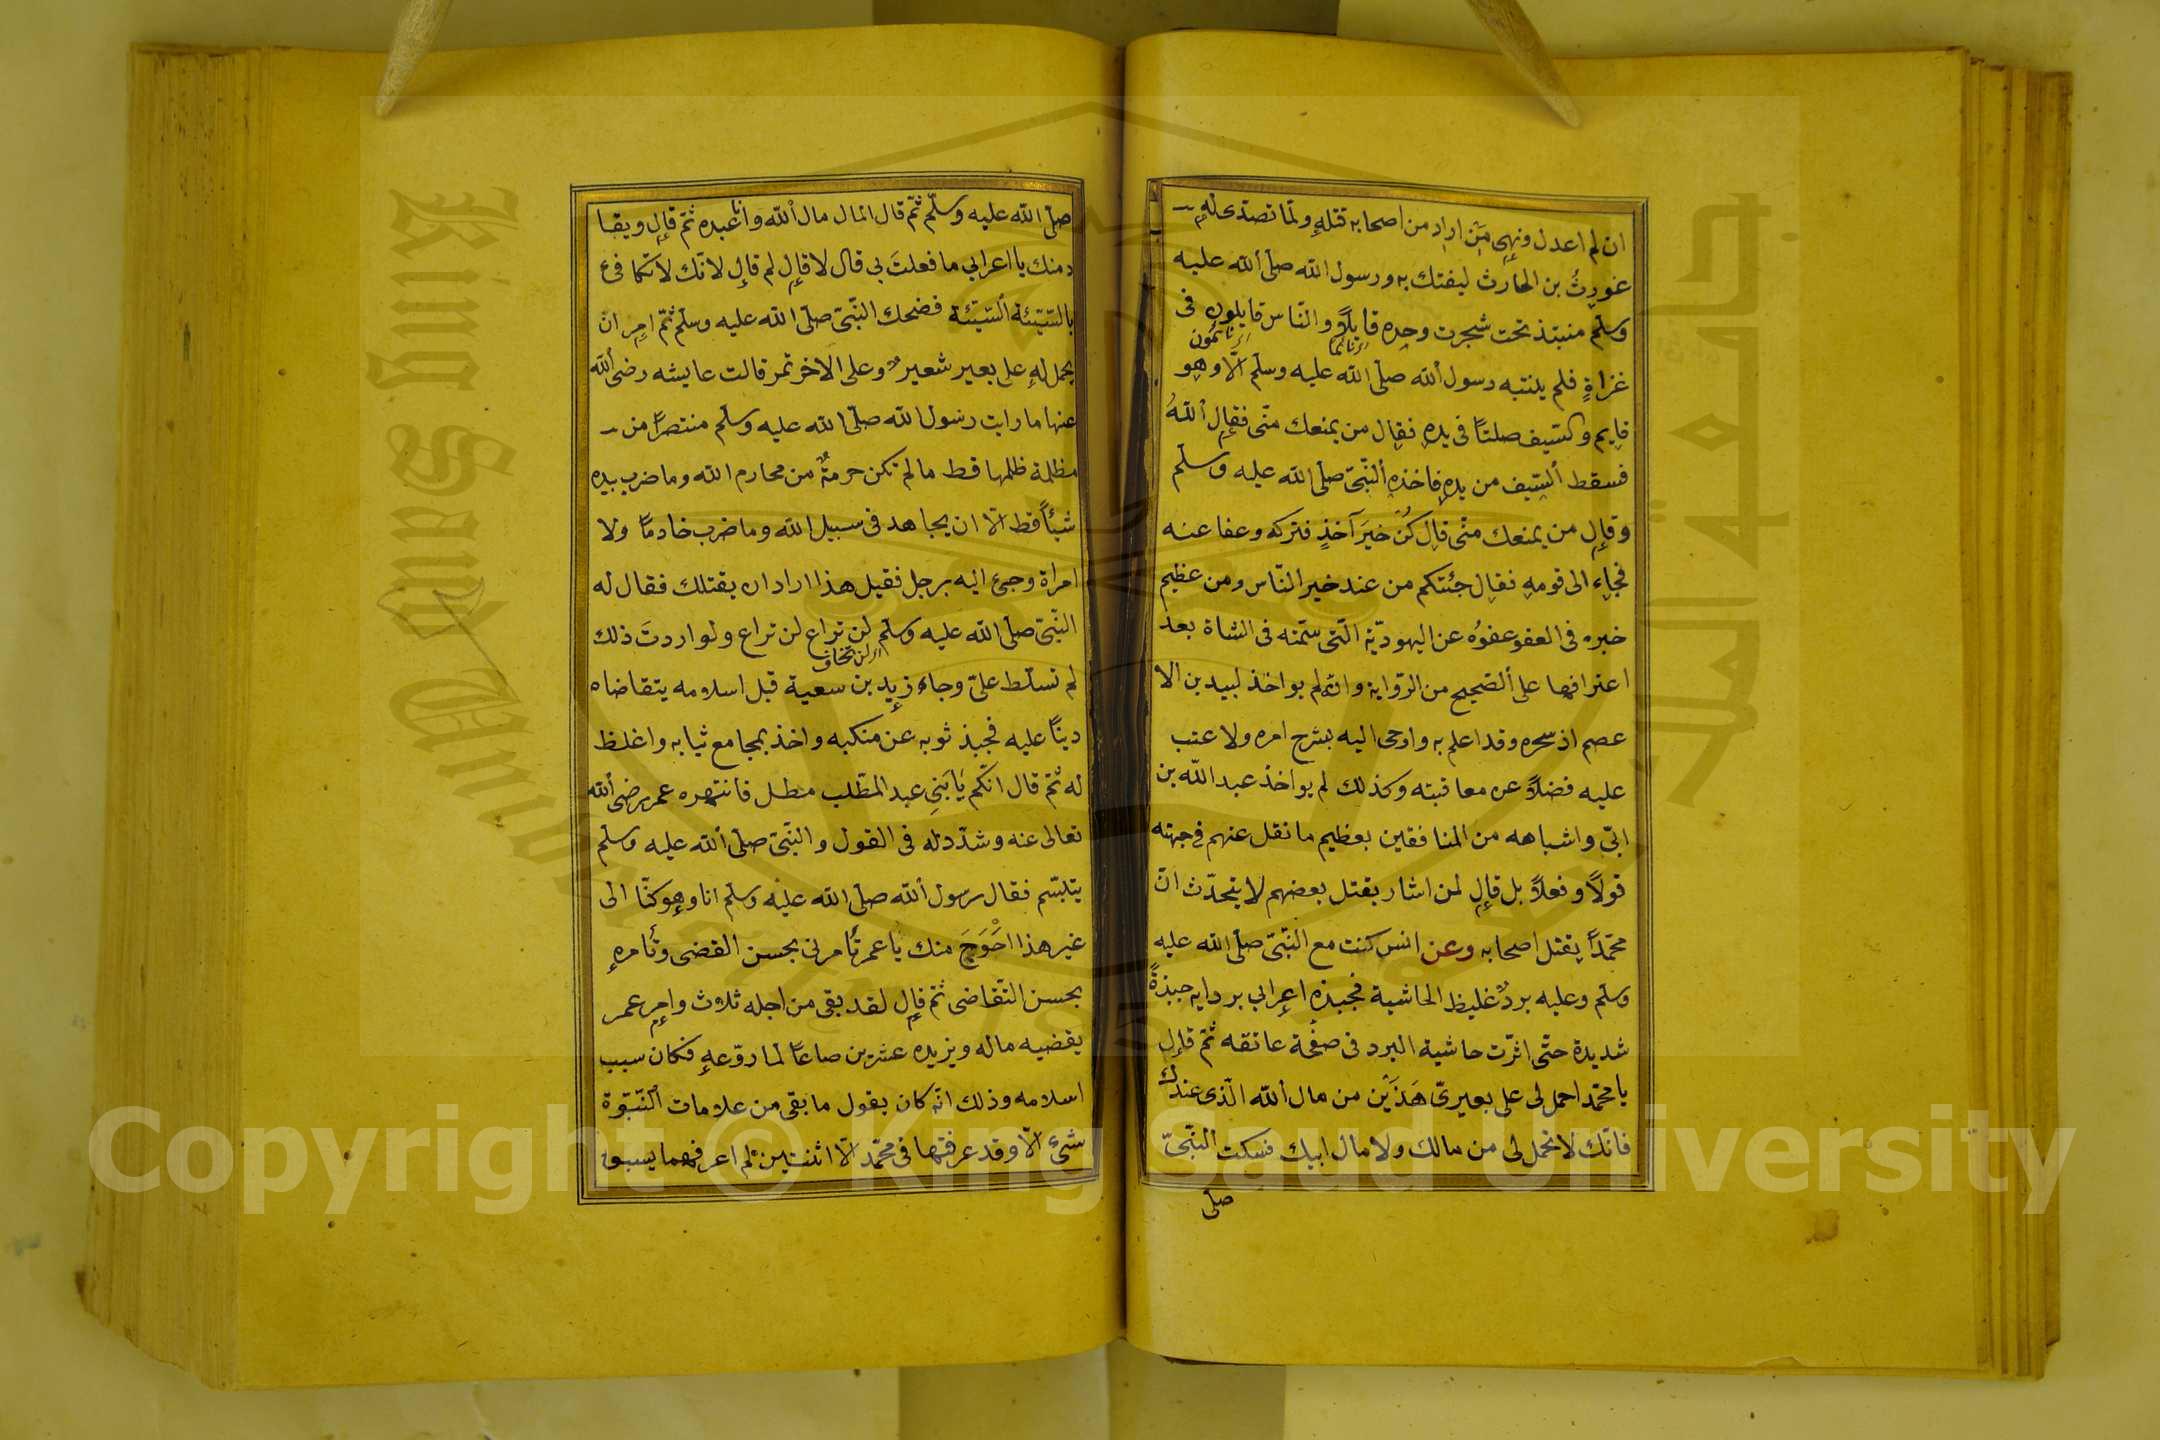 ان لم اعدل ونهى من اراد من اصحابه قتله ولما تصدى له
غورث بن الحارث ليفتك به ورسول الله صلى الله عليه
وسلم منتبذ تحت شجرت وحده قايلا والناس قايلون فى
اى نائما اى نائمون
غزاة فلم ينتبه رسول الله صلى الله عليه وسلم الا وهو
قايم والسيف صلتا فى يده فقال من يمنعك منى فقال الله
فسقط السيف من يده فاخذه النبى صلى الله عليه وسلم
وقال من يمنعك منى قال كن خير آخذ فتركه وعفا عنه
فجاء الى قومه فقال جئتكم من عند خير الناس ومن عظيم
خبره فى العفو عفوه عن اليهودية التى سمته فى الشاة بعد
اعترافها على الصحيح من الرواية وانه لم يواخذ لبيد بن الا
عصم اذ سحره وقد اعلم به واوحى اليه بشرح امره ولا عتب
عليه فضلا عن معاقبته وكذلك لم يواخذ عبد الله بن
ابى واشباهه من المنافقين بعظيم ما نقل عنهم فى جهته
قولا وفعلا بل قال لمن اشار بقتل بعضهم لا يتحدث ان
محمدا يقتل اصحابه وعن انس كنت مع النبى صلى الله عليه
وسلم وعليه برد غليظ الحاشية فجبذه اعرابي بردايه جبذة
شديدة حتى اثرت حاشية البرد فى صفحة عاتقه ثم قال
يا محمد احمل لى على بعيرى هذين من مال الله الذى عندك
فانك لا تحمل لى من مالك ولا مال ابيك فسكت النبى
صلى
صلى الله عليه وسلم ثم قال المال مال الله وانا عبده ثم قال ويقا
د منك يا اعرابي ما فعلت بي قال لا قال لم قال لانك لا تكافئ
بالسيئة السيئة فضحك النبى صلى الله عليه وسلم ثم امر ان
يحمل له على بعير شعير وعلى الاخر تمر قالت عايشه رضى الله
عنها ما رايت رسول الله صلى الله عليه وسلم منتصرا من
مظلمة ظلمها قط ما لم تكن حرمة من محارم الله وما ضرب بيده
شيئا قط الا ان يجاهد فى سبيل الله وما ضرب خادما ولا
امراة وجئ اليه برجل فقيل هذا اراد ان يقتلك فقال له
النبى صلى الله عليه وسلم لن تراع لن تراع ولو اردت ذلك
اى لن تخاف
لم تسلط على وجاء زيد بن سعية قبل اسلامه يتقاضاه
دينا عليه فجبذ ثوبه عن منكبه واخذ بمجامع ثيابه واغلظ
له ثم قال انكم يا بنى عبد المطلب مطل فانتهره عمر رضى الله
تعالى عنه وشدد له فى القول والنبى صلى الله عليه وسلم
يتبسم فقال رسول الله صلى الله عليه وسلم انا وهو كنا الى
غير هذا احوج منك يا عمر تامرنى بحسن القضى وتامره
بحسن التقاضى ثم قال لقد بقى من اجله ثلاث وامر عمر
يقضيه ماله ويزيده عشرين صاعا لما روعه فكان سبب
اسلامه وذلك انه كان يقول ما بقى من علامات النبوة
شئ الا وقد عرفتها فى محمد الا اثنتين لم اعرفهما يسبق
King Saud University
جامعة الملك
Copyright © King Saud University